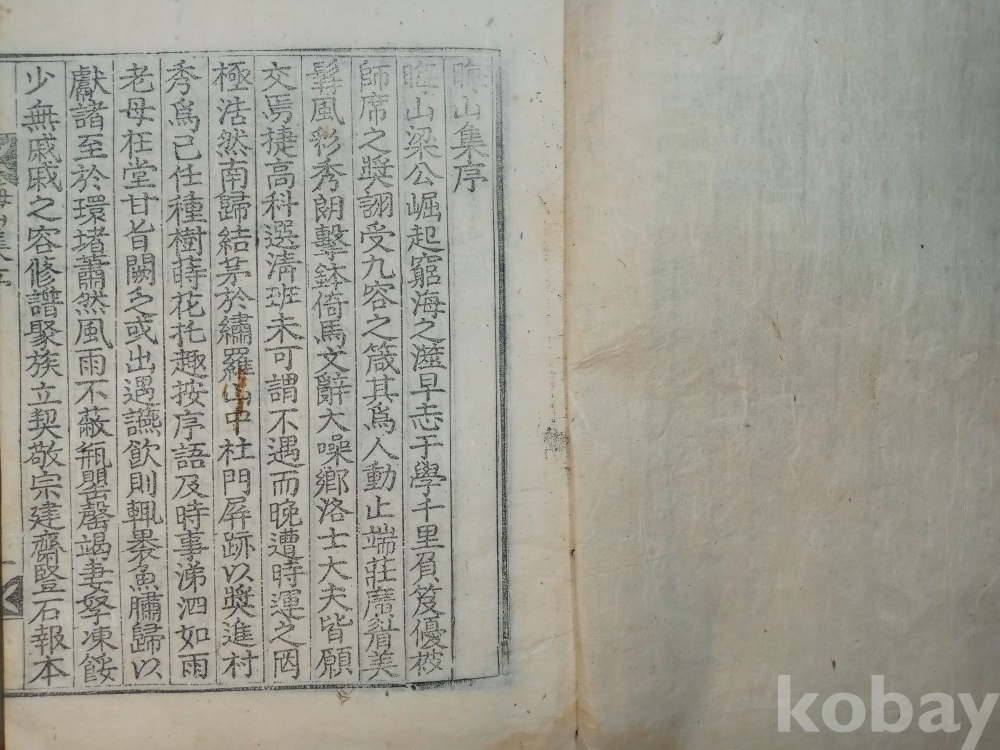 晦山集序
晦山梁公崛起窮海之澨早志于學千里負笈優被
師席之奬詡受九容之箴其爲人動止端莊廣顙美
髯風彩秀朗擊鉢倚馬文辭大噪鄕洛士大夫皆願
交焉捷高科選淸班未可謂不遇而晩遭時運之罔
極浩然南歸結茅於繡羅山中杜門屛跡以奬進村
秀爲己任種樹蒔花托趣按序語及時事涕泗如雨
老母在堂甘旨闕之或出遇讌飮則輒褁魚膰歸以
獻諸至於環堵蕭然風雨不蔽甁罌罄竭妻孥凍餒
少無戚戚之容修譜聚族立契敬宗建齋竪石報本
kobay